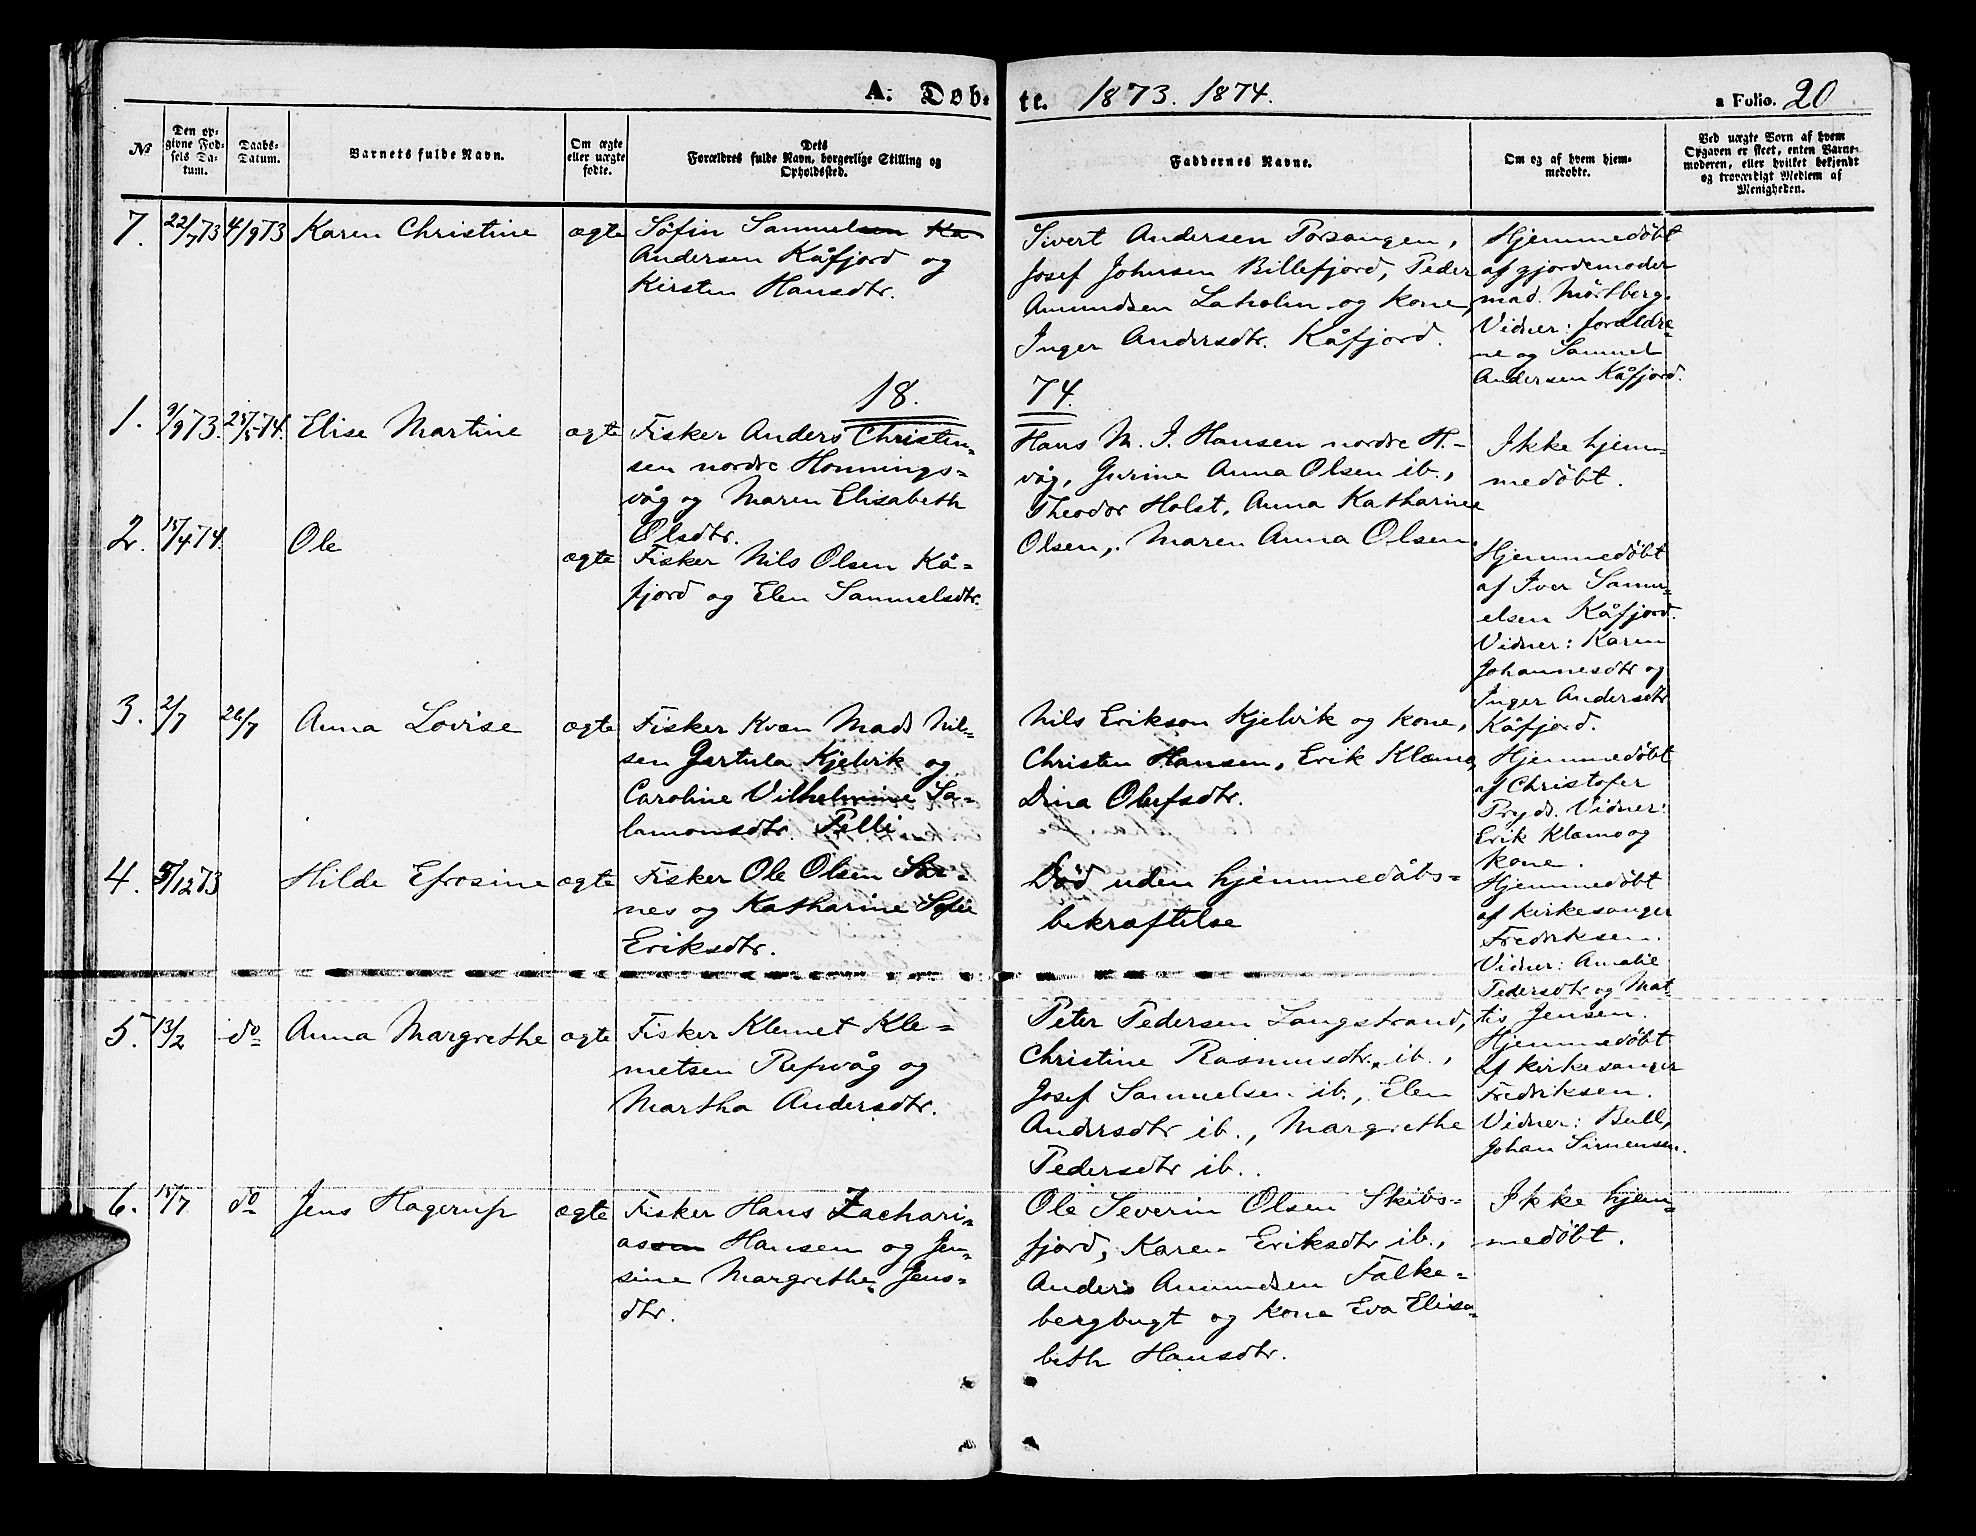 A. Døb-
te. 1873. 1874.
a Folio. 20
No
Den op-
givne Fød-
sels Da-
tum.
Daabs-
Datum.
Barnets fulde Navn.
Om ægte
eller uægte
fødte.
Dets
Forældres fulde Navn, borgerlige Stilling og
Opholdssted.
Faddernes Navne.
Om og af hvem hjem-
medøbte.
Ved uægte Born af hvem
Opgaven er skeet, enten Barne-
moderen, eller hvilket bekjendt
og troværdigt Medlem af
Menigheden.
7. 22/7 73 4/9 73 Karen Christine ægte
Sofin Samuelsen Ka
Andersen Kåfjord og
Kirsten Hansdtr.
Sivert Andersen Porsangen,
Josef Johnsen Billefjord, Peder
Amundsen Laholm og kone,
Inger Andersdtr. Kåfjord.
Hjemmedöbt
af gjordemoder
mad. Mørtberg.
Vidner: forældre-
ne og Samuel
Andersen Kåfjord.
1874.
1. 9/9 73. 25/5 74. Elise Martine ægte
Fisker Anders Christen-
sen nordre Honnings-
våg og Maren Elisabeth
Olsdtr.
Hans M. J. Hansen nordre H.-
våg, Gurine Anna Olsen ib.,
Theodor Holst, Anna Katharine
Olsen, Maren Anna Olsen.
Ikke hjem-
medöbt.
2. 15/4 74. Ole ægte
Fisker Nils Olsen Kå-
fjord og Elen Sammelsdtr.
Hjemmedöbt
af Iver Samu-
elsen Kåfjord.
Vidner: Karen
Johannesdtr og
Inger Andersdtr
Kåfjord.
3. 2/7 26/7 Anna Lovise ægte
Fisker Kvæn Mads Nil-
sen Gertula Kjelvik og
Caroline Vilhelmine Sa-
lamonsdtr. Pelli
Nils Erikson Kjelvik og kone,
Christen Hansen, Erik Klæmo,
Dina Olufsdtr.
Hjemmedöbt
af Christofer
Pryds. Vidner:
Erik Klæmo og
kone.
4. 5/12 73 Hilde Efrosine ægte
Fisker Ole Olsen Sar-
nes og Katharine Sofie
Eriksdtr.
Död uden hjemmedåbs-
bekræftelse
Hjemmedöbt
af kirkesanger
Fredriksen.
Vidner: Amalie
Pedersdtr og Mat-
tis Jensen.
5. 13/2 do Anna Margrethe ægte
Fisker Klemet Kle-
metsen Refsvåg og
Martha Andersdtr.
Peter Pedersen Langstrand,
Christine Rasmusdtr. ib.,
Josef Samuelsen ib., Elen
Andersdtr ib., Margrethe
Pedersdtr ib.
Hjemmedöbt
af kirkesanger
Fredriksen.
Vidner: Bull,
Johan Simensen.
6. 15/7 do Jens Hagerup ægte
Fisker Hans Zachari-
assen Hansen og Jen-
sine Margrethe Jens-
dtr.
Ole Severin Olsen Skibs-
fjord, Karen Eriksdtr ib.,
Anders Amundsen Falke-
bergbugt og kone Eva Elisa-
beth Hansdtr.
Ikke hjem-
medöbt.